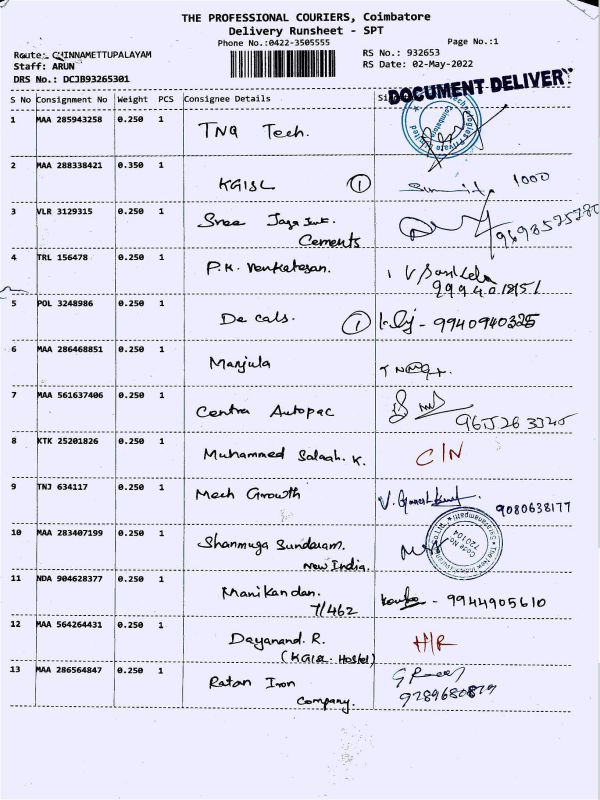 THE PROFESSIONAL COURIERS, Coimbatore
Delivery Runsheet - SPT
Phone No.:0422-3505555 Page No.:1
Route: CHINNAMETTUPALAYAM RS No.: 932653
Staff: ARUN RS Date: 02-May-2022
DRS No.: DCJB93265301
DOCUMENT DELIVERY
S No Consignment No Weight PCS Consignee Details
1 MAA 285943258 0.250 1 TNQ Tech.
2 MAA 288338421 0.350 1 KGISL 1 1000
3 VLR 3129315 0.250 1 Sree Jaga
Cements
4 TRL 156478 0.250 1 P.K. Venkatesan.
9994018151
5 POL 3248986 0.250 1 De cals. 1 - 9940940325
6 MAA 286468851 0.250 1 Manjula
7 MAA 561637406 0.250 1 Centra Autopac
8 KTK 25201826 0.250 1 Muhammed Salaah. K. C/N
9 TNJ 634117 0.250 1 Mech Growth V.
9080638177
10 MAA 283407199 0.250 1 Shanmuga Sundaram.
New India.
Code No
720104
11 NDA 904628377 0.250 1 Manikandan.
7/462 - 9944905610
12 MAA 564264431 0.250 1 Dayanand. R. H/R
(KGISL Hostel)
13 MAA 286564847 0.250 1 Ratan Iron
Company.